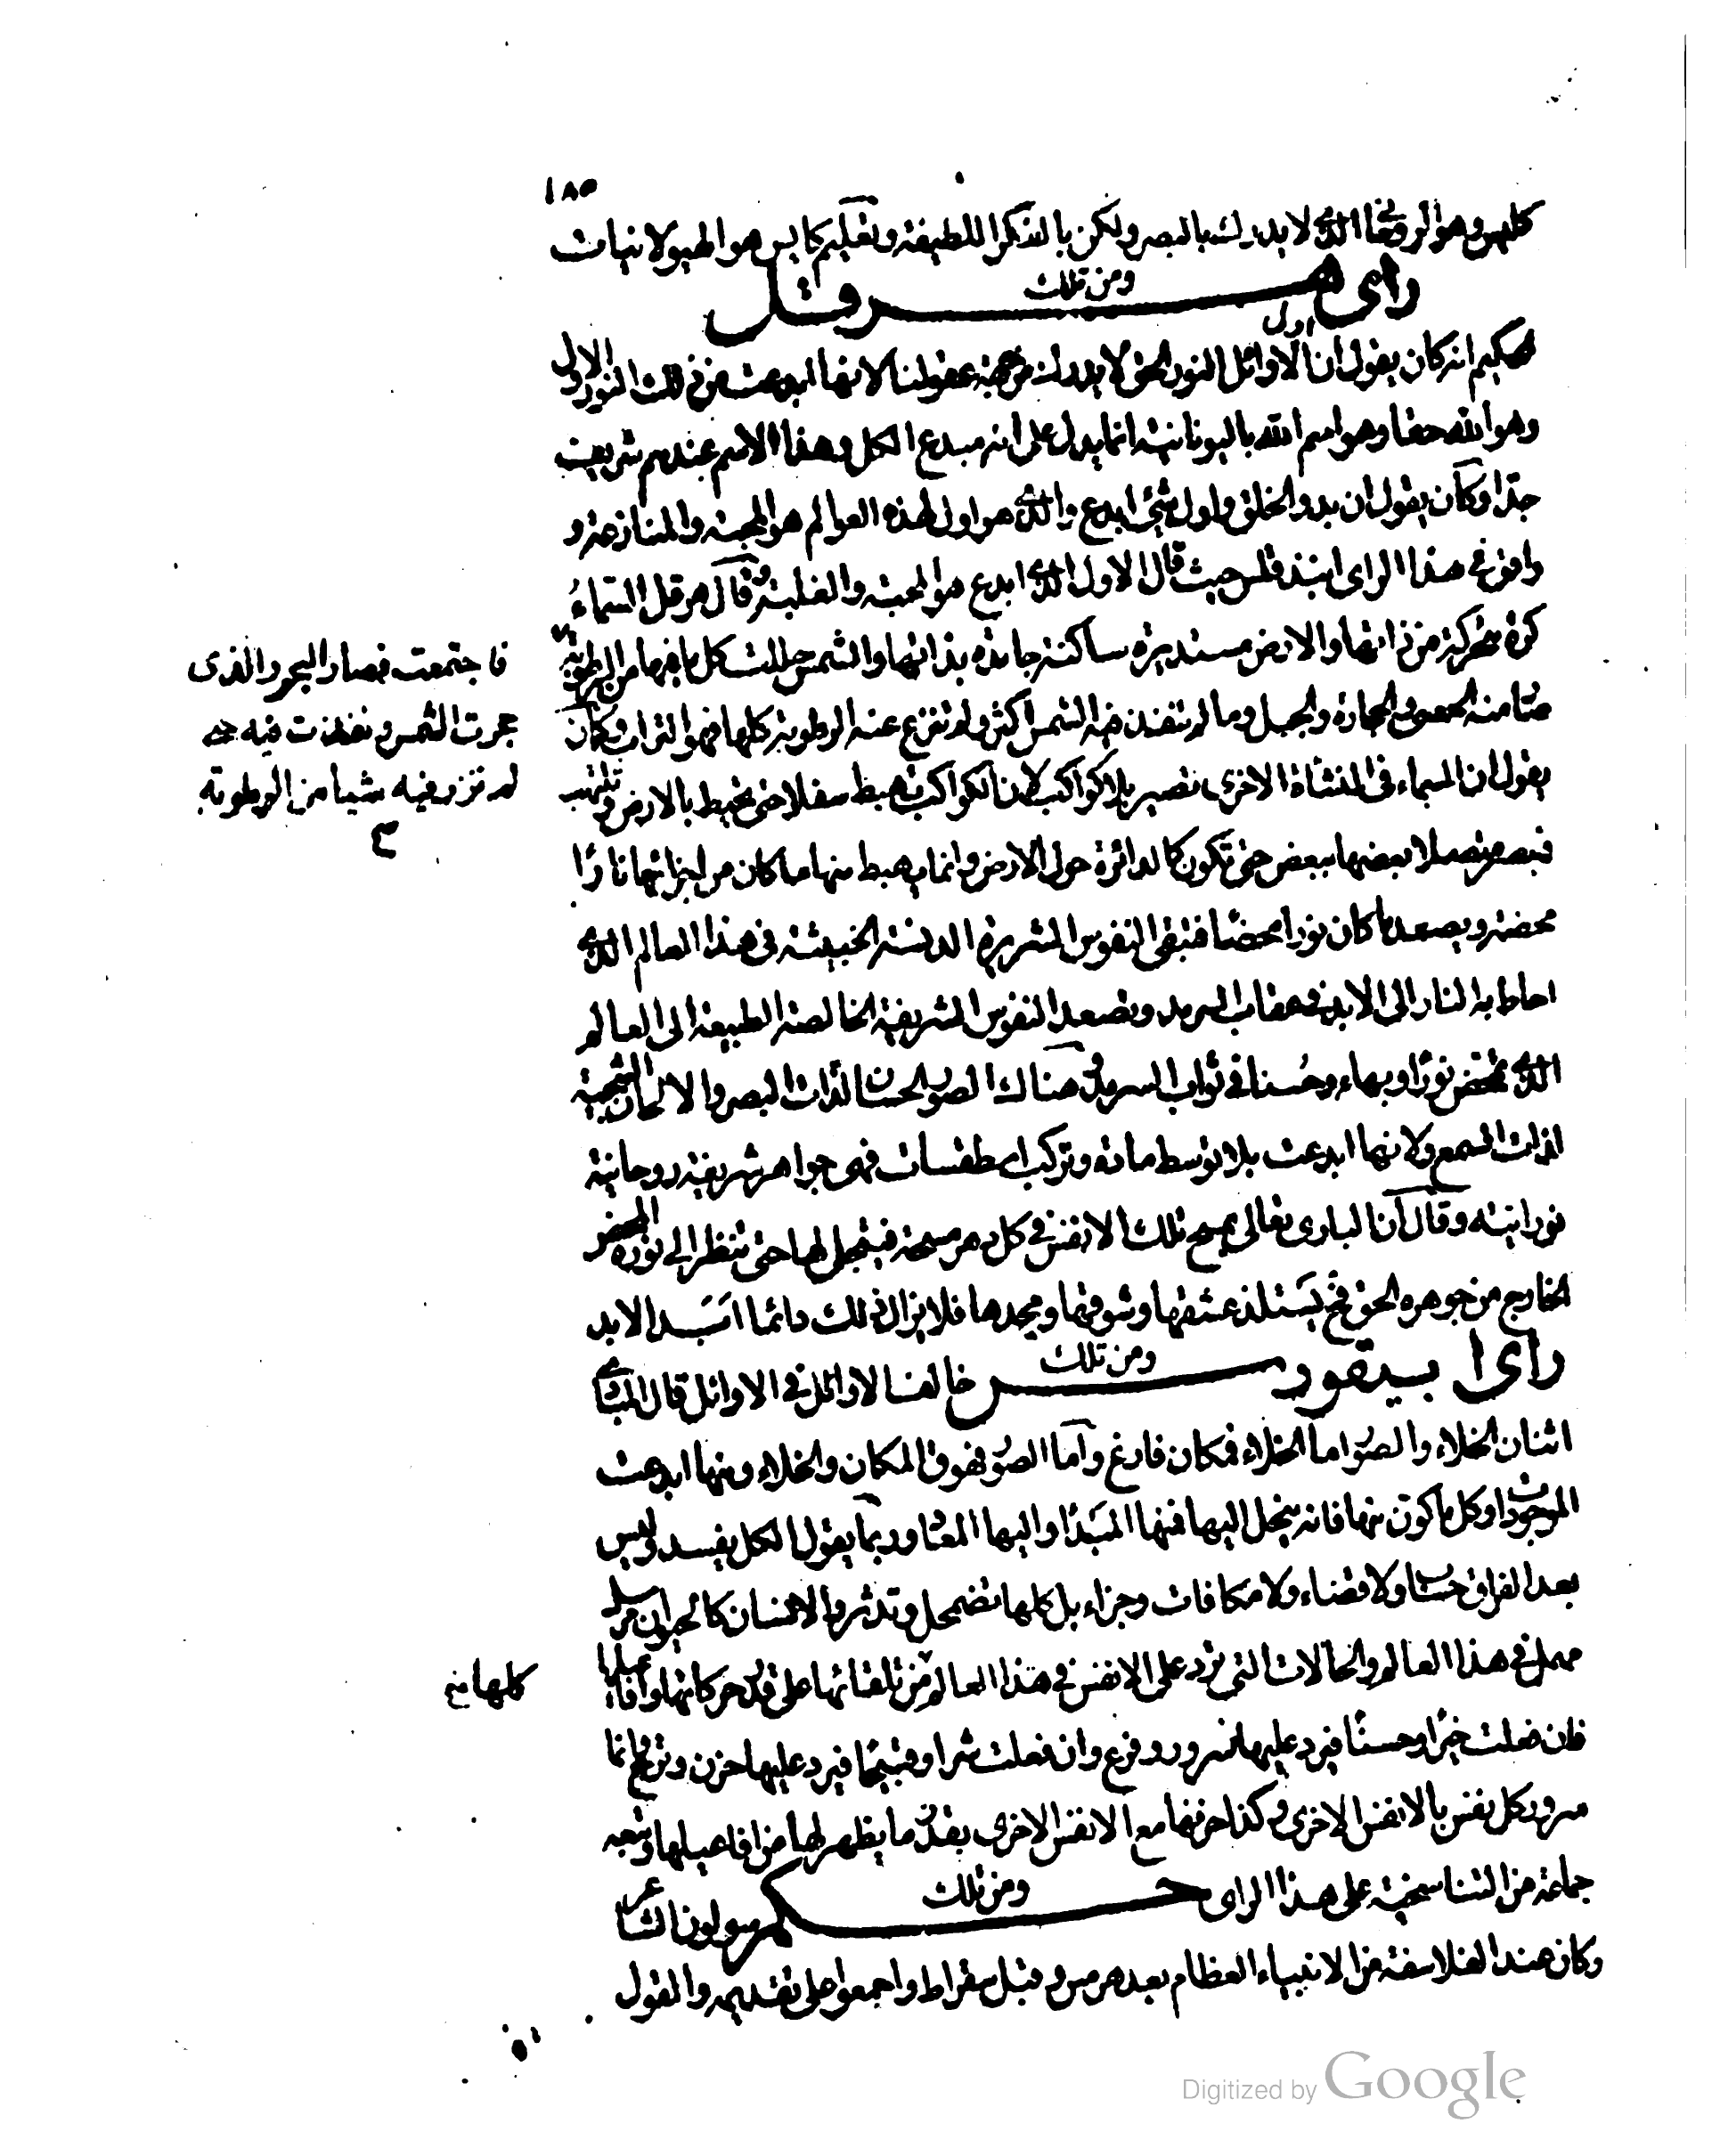 ١٨٥
كلهن وهو الروحاني الذي لا يدرك بالبصر ولكن بالفكر اللطيفة وتعليم كابس هو الهيولانيات
ومن تلك
راى هرقل
الحكيم انه كان يقول ان اول الاوائل النور الحق لا يدرك من جهة عقولنا لانها ابدعت من ذلك النور الاول
وهو الله حقا وهو اسم الله باليونانية انما يدل على انه مبدع الكل وهذا الاسم عندهم شريف
جدا وكان يقول ان بدو الخلق واول شئ ابدع والذي هو اول لهذه العوالم هو المحبة والمنازعة و
وافق في هذا الراى ابندقلس حيث قال الاول الذي ابدع هو المحبة والغلبة وقال هرقل السماء
كرة متحركة من ذاتها والارض مستديرة ساكنة جامدة بذاتها والشمس حللت كل ما فيها من الرطوبة
فاجتمعت فصار البحر والذى
حجرت الشمس ونفذت فيه حتى
لم تزر فيه شيا من الرطوبة
صار منه الحصى والحجارة والجبل وما لم تنفذ فيه الشمس اكثر ولم تنزع عنه الرطوبة كلها فهو التراب وكان
يقول ان السماء في النشاة الاخرى تصير بلا كواكب لان الكواكب تهبط سفلا حتى تحيط بالارض وتلتهب
فيصير متصلا بعضها ببعض حتى تكون كالدائرة حول الارض وانما يهبط منها ما كان من اجزائها نارا
محضة ويصعد ما كان نورا محضا فتبقى النفوس الشريرة الدنسة الخبيثة في هذا العالم الذي
احاط به النار الى الابد في عقاب السرمد وتصعد النفوس الشريفة الخالصة الطيبة الى العالم
الذي تمحض نورا وبهاء وحسنا في ثواب السرمد وهناك الصور الحسان لذات البصر والالحان الشجية
لذات السمع ولانها ابدعت بلا توسط مادة وتركب اسطقسات فهي جواهر شريفة روحانية
نورانية وقال ان البارى تعالى يمسح تلك الانفس في كل دهر مسحة فيتجلى لها حتى تنظر الى نوره المحض
الخارج من جوهره الحق فح يستلذ عشقها وشوقها ومجدها فلا يزال ذلك دائما ابد الابد
ومن تلك
راى ابيقورس خالف الاوائل في الاوائل قال المبادي
اثنان الخلاء والصور اما الخلاء فمكان فارغ واما الصور فهو فوق المكان والخلاء ومنها ابدعت
الموجودات وكل ما كون منها فانه ينحل اليها فمنها المبدا واليها المعاد وربما يقول الكل يفسد وليس
بعد الفراق حساب ولا قضاء ولا مكافات وجزاء بل كلها تضمحل وتدثر والانسان كالحيوان مرسل
مهمل في هذا العالم والحالات التي ترد على الانفس في هذا العالم من تلقائها على قدر حركاتها وافاعيلها
كلها منح
فان فعلت خيرا وحسنا فيرد عليها سرور وفرح وان فعلت شرا وقبيحا فيرد عليها حزن وترح وانما
سرور كل نفس بالانفس الاخرى وكذا حزنها مع الانفس الاخرى بقدر ما يظهر لها من افاعيلها وتبعه
جماعة من التناسخية على هذا الراى
ومن تلك
حكم سولون الشاعر
وكان عند الفلاسفة من الانبياء العظام بعد هرمس وقبل سقراط واجمعوا على تقديمه والقول
Digitized by Google